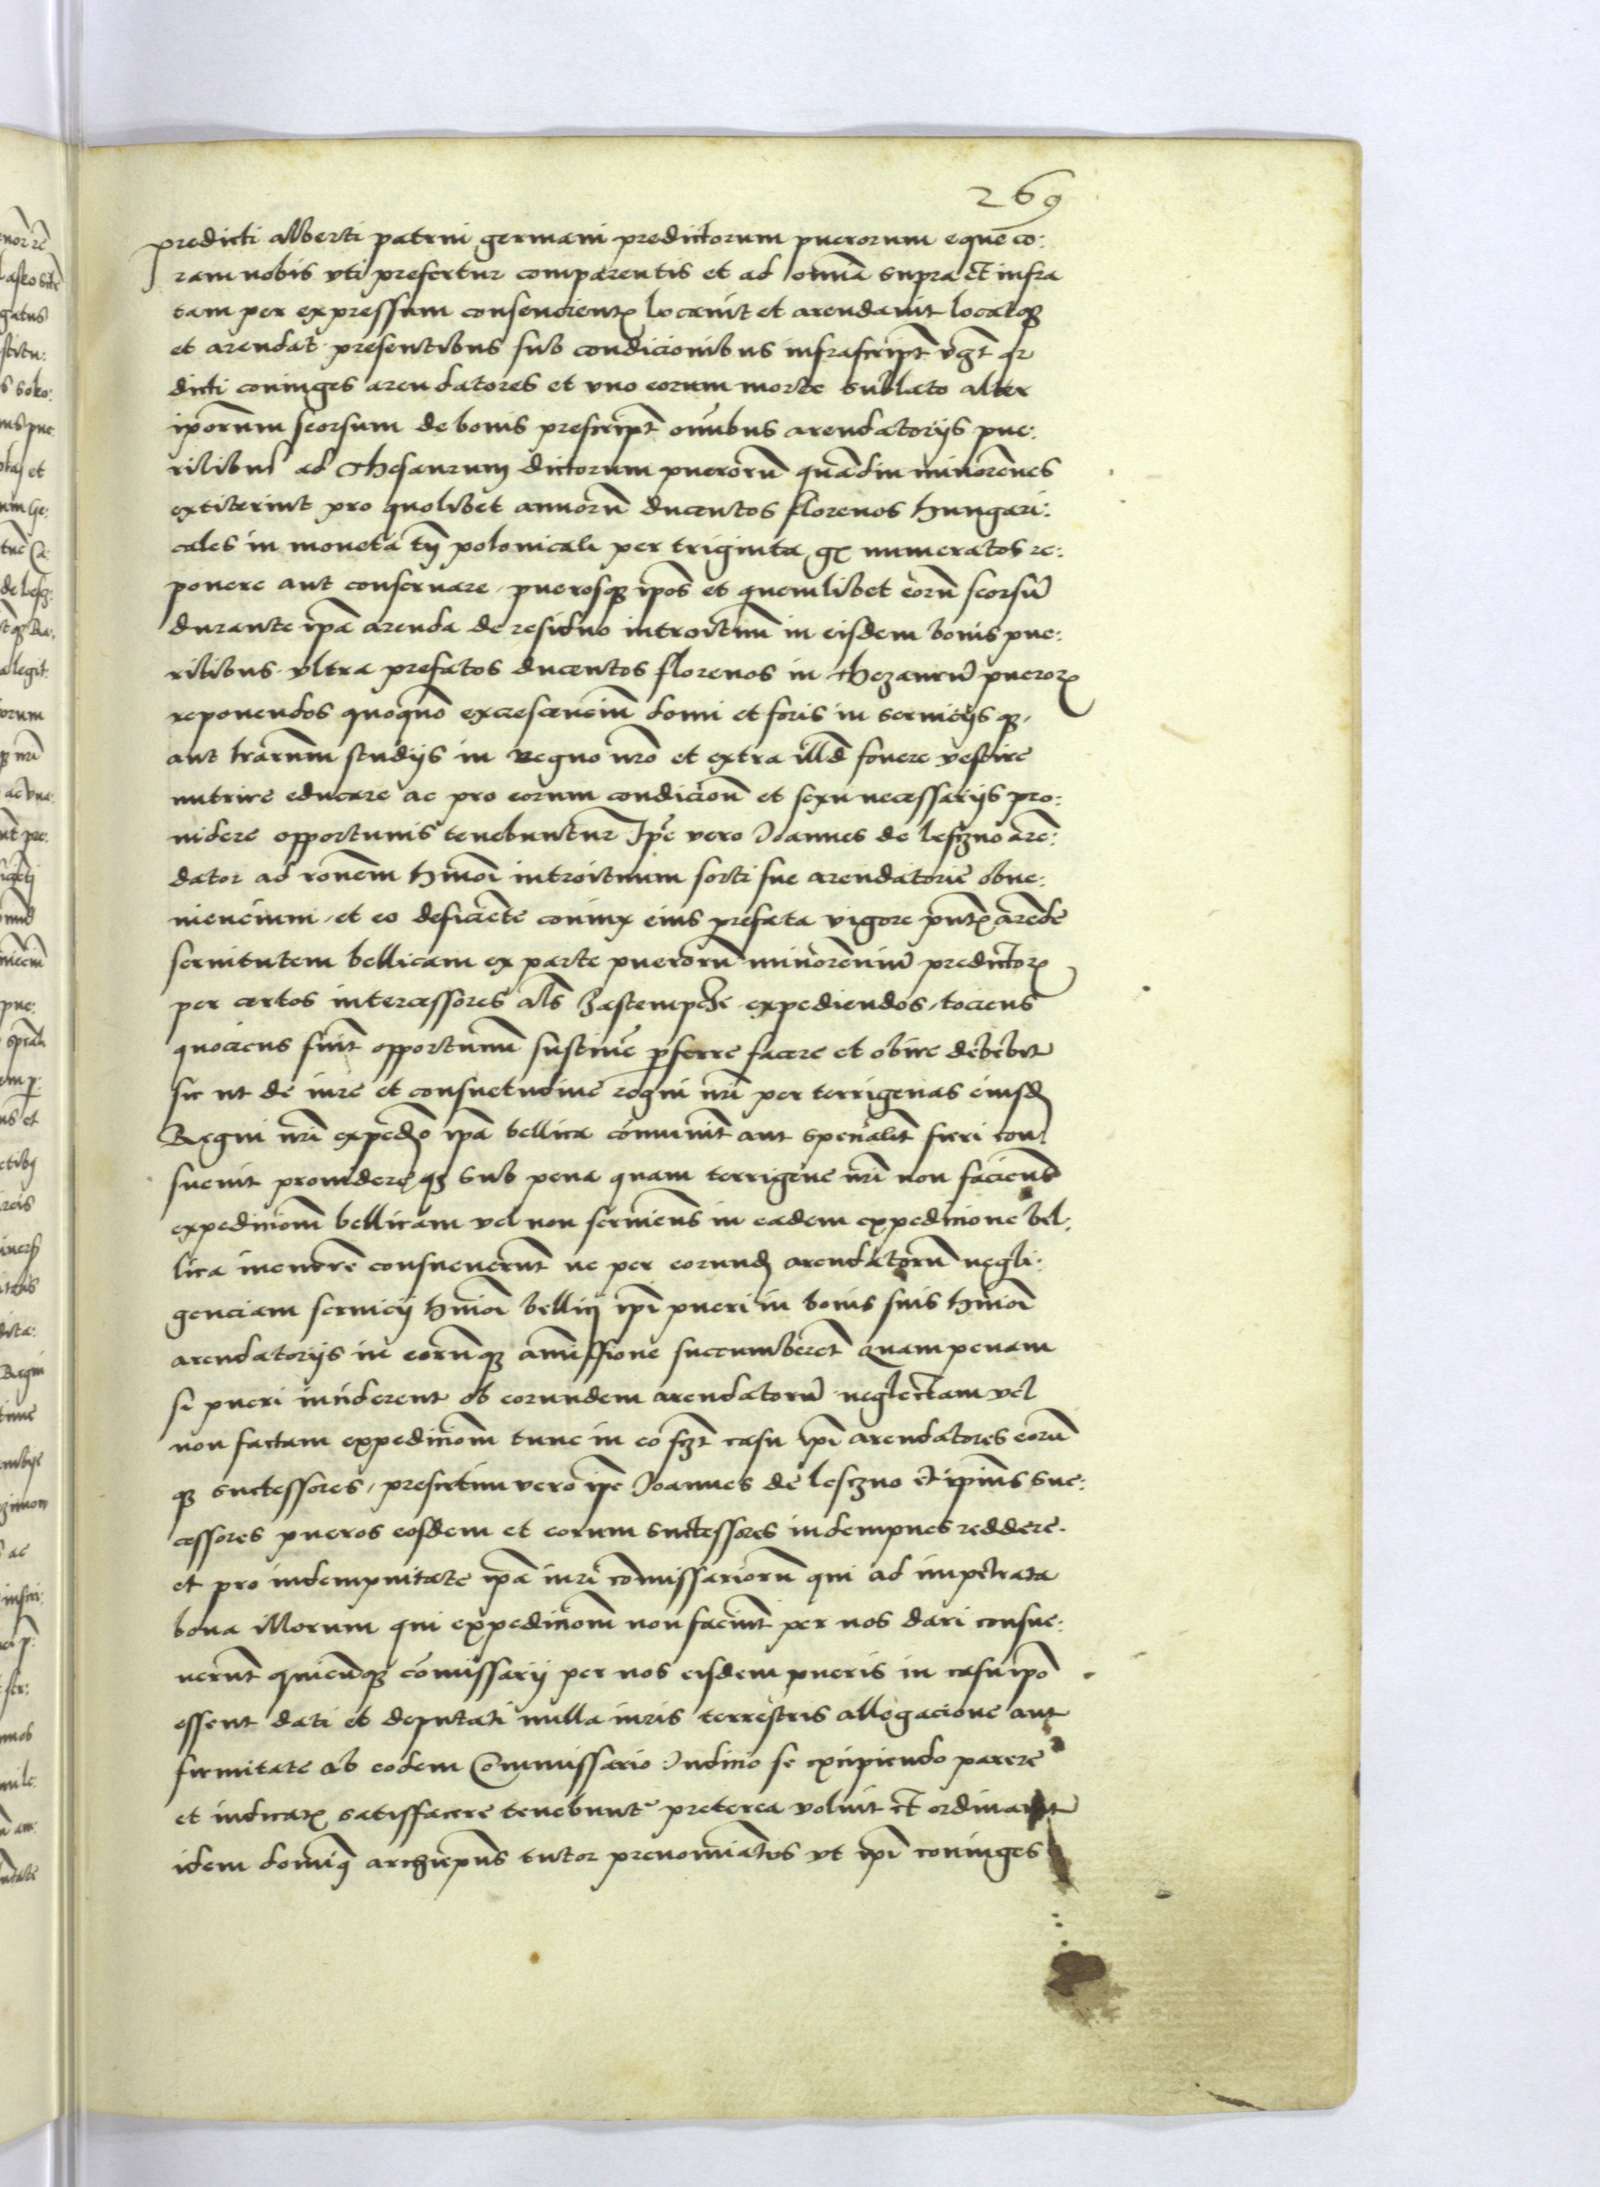 269
predicti alberti patrui germani predictorum puerorum eque co:
ram nobis uti prefertur comparentis et ad omnia supra et infra
tam per expressum consencientis locavit et arendavit locatque
et arendat presentibus sub condicionibus infrascript vz qr
dicti coniuges arendatores et uno eorum morte sublato alter
ipōrum seorsum de bonis prescript omībus arendatoriis pue:
rilibus ad thesaurum dictorum puerorū quādiu minorēnes
extiterint pro quolibet annorū ducentos florenos hungari:
cales in monetā polonicali per triginta gr numeratos re:
ponere aut conservare puerosque ipōs et quemlibet eorū seorsū
durante ipā arenda de residuo introituū in eisdem bonis pue:
rilibus ultra prefatos ducentos florenos in thezaurū pueror
reponendos quoquō excrescenciū domi et foris in serviciis que
aut lrārum studiis in Regno nrō et extra illd fovere vestire
nutrire educare ac pro eorum condiciōn et sexu necessariis pro:
videre opportunis tenebuntur Ipē vero Joannes de lesczno arē:
dator ad rōnem hmōi introituum sorti sue arendatorie obve:
niencium et eo deficiēte coniux eius prefata vigore pntis arēde
servitutem bellicam ex parte puerorū minorēniū predictor
per certos intercessores als zastempcze expediendos tociens
quociens fuīt opportunū sustinē pferre facere et obire debebit
sic ut de iure et consuetudine regni nrī per terrigenas eiusd
Regni nrī expedō ipā bellica cōmunīt aut specialīt fieri con
suevit providereque sub pena quam terrigene nrī non facientes
expediciōnem bellicam vel non servientes in eadem expedicione bel:
lica incurrē consueverunt ne per eorund arendatorū negli:
genciam servicii hmōi bellici ipī pueri in bonis suis hmōi
arendatoriis in eorūque amissione succumberēt Quam penam
si pueri inciderent ob eorundem arendatorū neglectam vel
non factam expediciōnem tunc in eo casu ipī arendatores eorū
que successores presertim vero ipē Joannes de lesczno et ipīus suc:
cessores pueros eosdem et eorum successores indempnes reddere
et pro indempnitate ipā iuri cōmissariorū qui ad impetrata
bona illorum qui expediciōnem non faciūt per nos dari consue:
verunt quicūque cōmissarii per nos eisdem pueris in casu ipō
essent dati et deputati nulla iuris terrestris allegacione aut
firmitate ab eodem Commissario Judicio se excipiendo parere
et iudicatis satisfacere tenebuntur preterea voluit et ordinavit
idem dominus archiepūs tutor prenominatus ut ipī coniuges